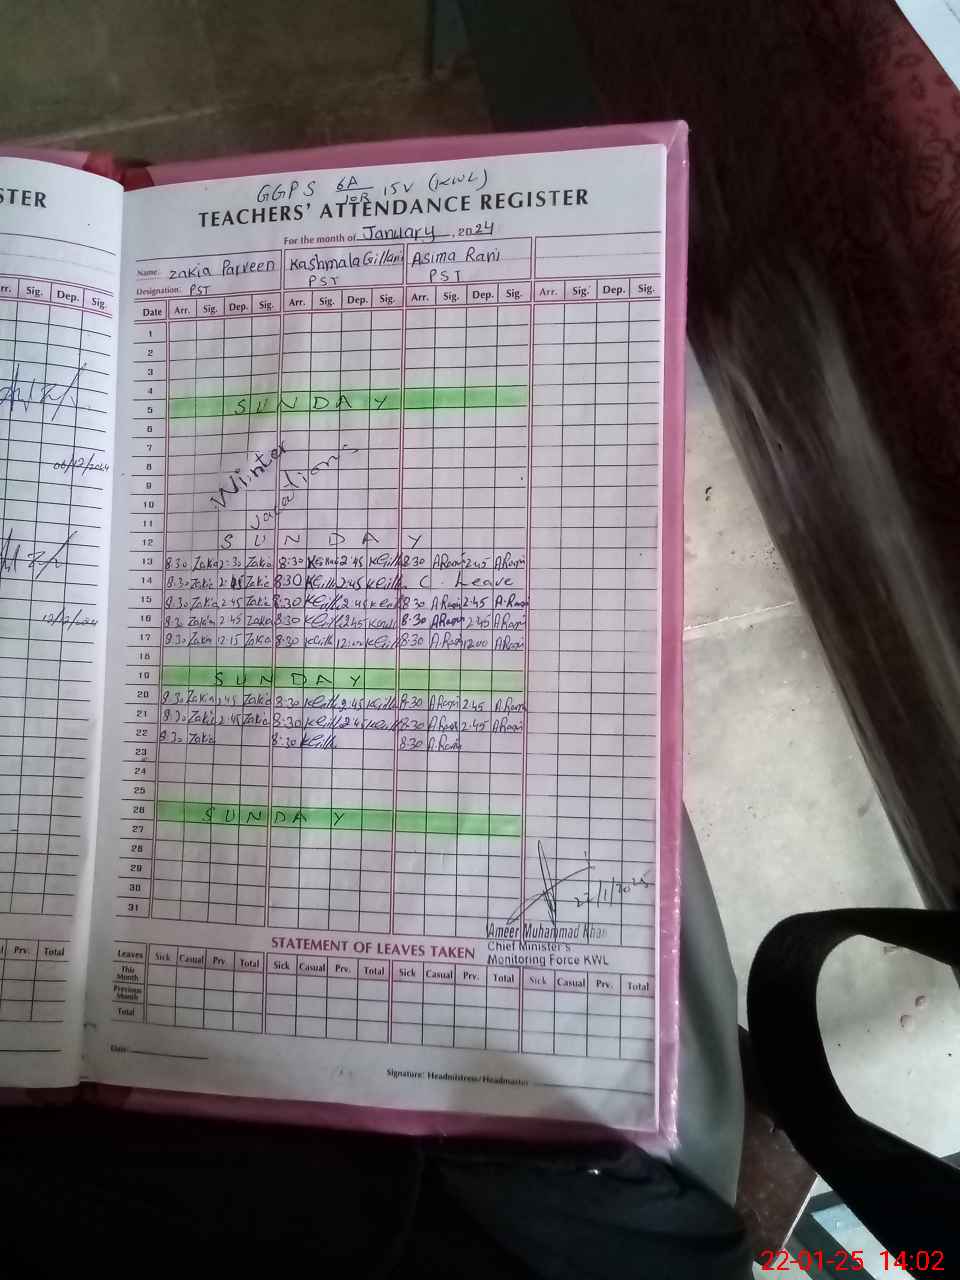 STER
GGPS 6A/10R 15V (KWL)
TEACHERS' ATTENDANCE REGISTER
For the month of January, 2024
Name: Zakia Parveen Kashmala Gillani Asima Rani
Designation: PST PST PST
rr. Sig. Dep. Sig.
Date Arr. Sig. Dep. Sig. Arr. Sig. Dep. Sig. Arr. Sig. Dep. Sig. Arr. Sig. Dep. Sig.
1
2
3
4
5 SUNDAY
6
7
8 Winter
9 vacations
10
11
12 SUNDAY
13 8:30 Zakia 2:30 Zakia 8:30 2:45 KGill 8:30 A Rani 2:45 A Rani
14 8:30 Zakia 2:45 Zakia 8:30 KGill 2:45 KGill C. Leave
15 8:30 Zakia 2:45 Zakia 8:30 KGill 2:45 KGill 8:30 A Rani 2:45 A.Rani
16 8:30 Zakia 2:45 Zakia 8:30 KGill 2:45 KGill 8:30 A Rani 2:45 A Rani
17 8:30 Zakia 12:15 Zakia 8:30 KGill 12:00 KGill 8:30 A.Rani 12:00 A Rani
18
19 SUNDAY
20 8:30 Zakia 2:45 Zakia 8:30 KGill 2:45 KGill 8:30 A Rani 2:45 A.Rani
21 8:30 Zakia 2:45 Zakia 8:30 KGill 2:45 KGill 8:30 A Rani 2:45 A Rani
22 8:30 Zakia 8:30 KGill 8:30 A.Rani
23
24
25
26 SUNDAY
27
28
29
30
31
22/1/2025
Ameer Muhammad Khan
Chief Minister's
Monitoring Force KWL
STATEMENT OF LEAVES TAKEN
Prv. Total
Leaves Sick Casual Prv. Total Sick Casual Prv. Total Sick Casual Prv. Total Sick Casual Prv. Total
This Month
Previous Month
Total
Date:
Signature: Headmistress/Headmaster
22-01-25 14:02